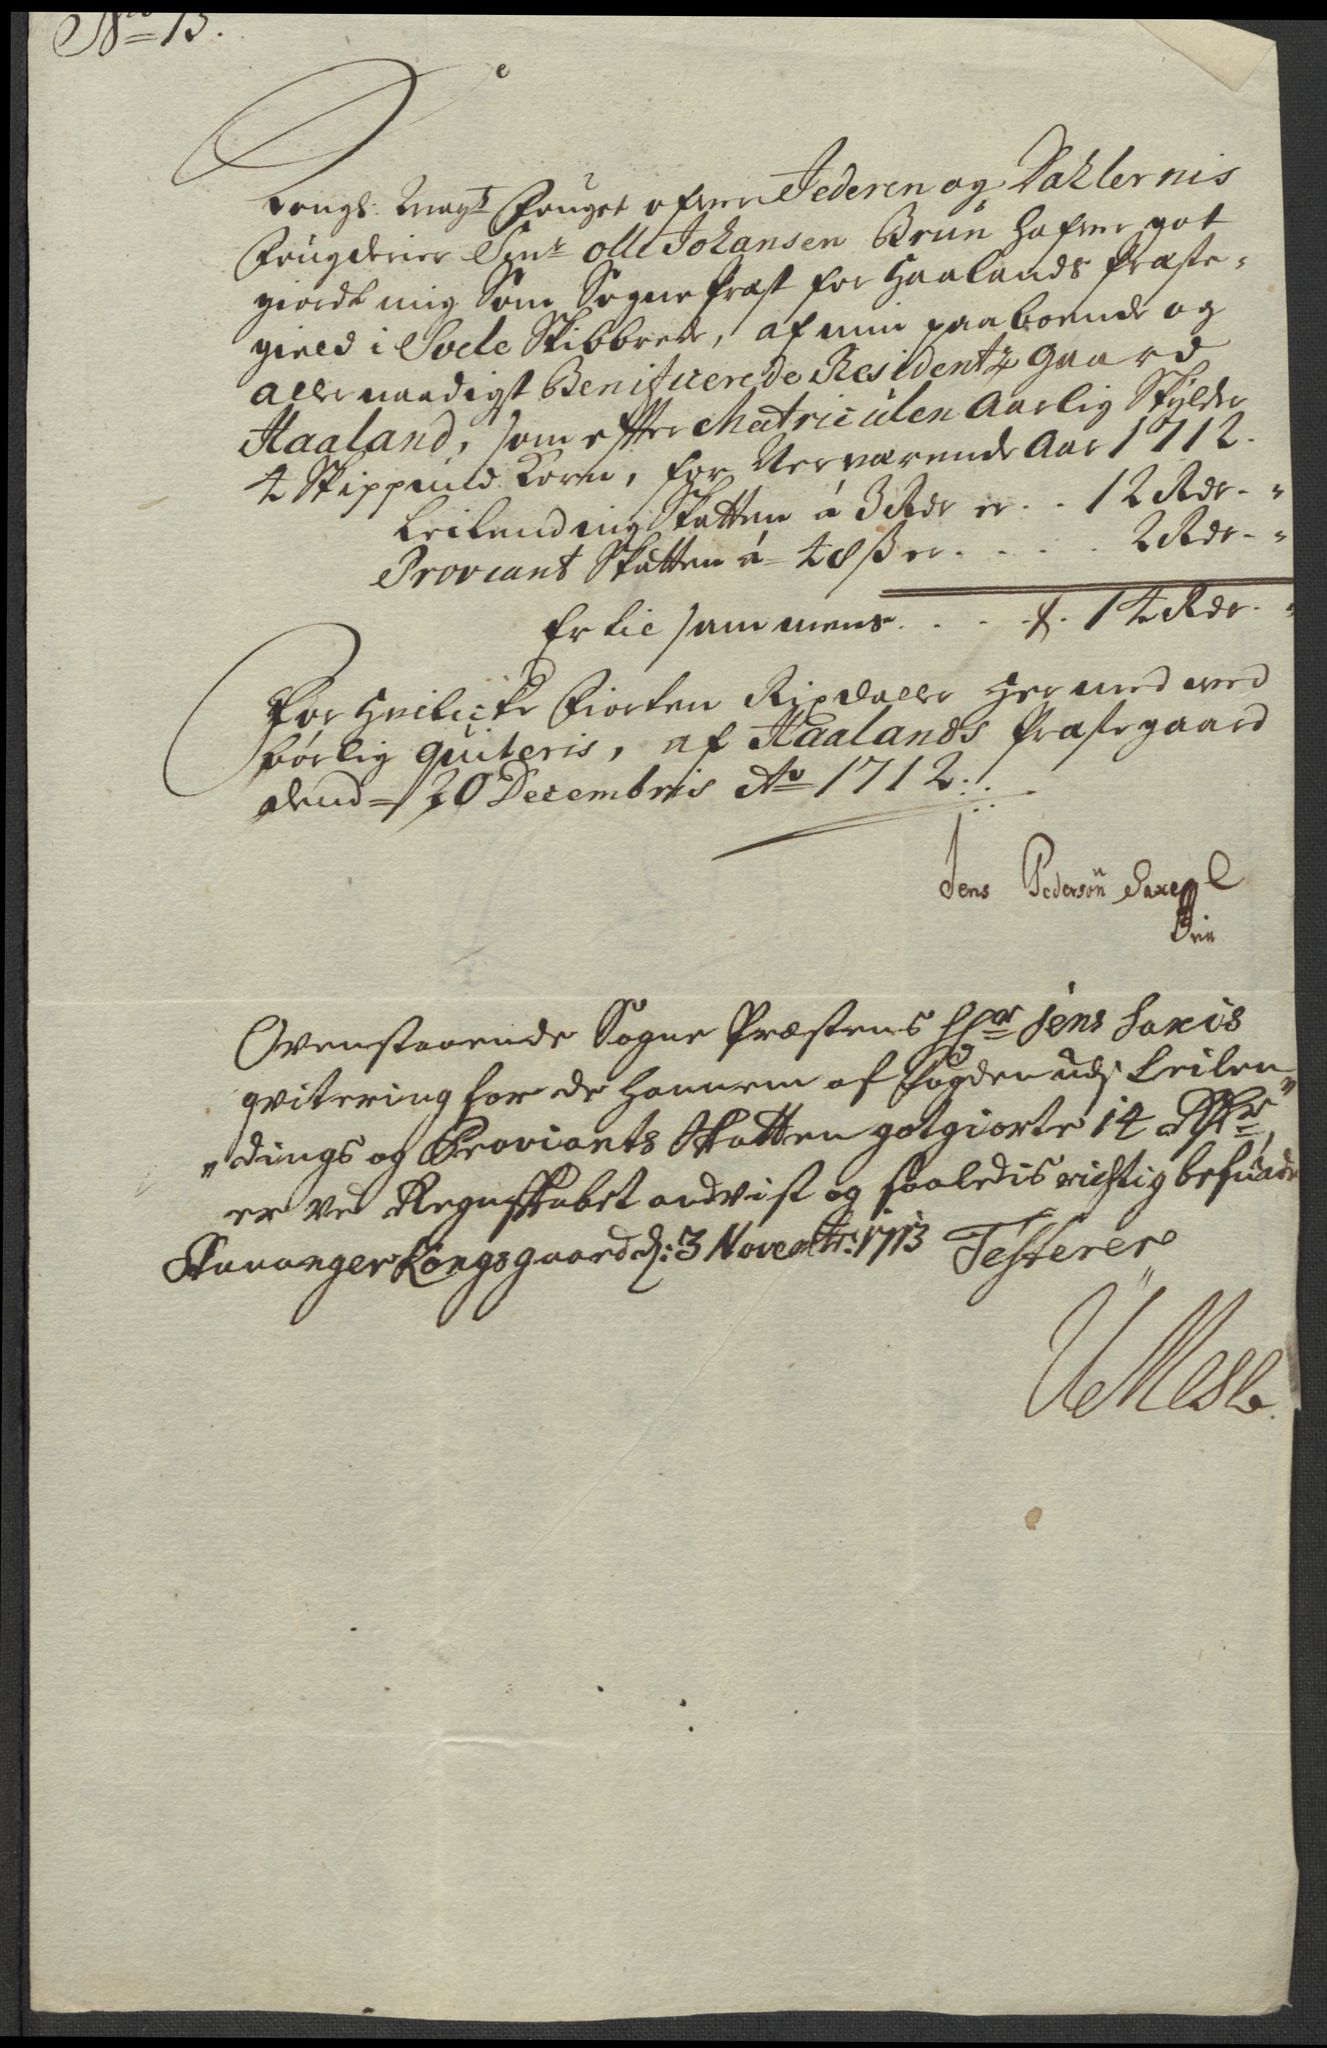 No 13.
Kongl: Mayts Fouget ofver Jederen og Dahlernis
Fougderier Sinr olle Johansen Brun hafver got
giordt mig Som Sogne Præst for Haalands Præste=
gield i Soele Skibbrede, af min paaboende og
allernaadigst Benificerede Residentz gaard
Haaland, som efter Matriculen Aarlig Skylder
4 Skippund Korn, for Nerværende Aar 1712.
Leilending Skatten á 3 Rdr er . . 12 Rdr - "
Proviant Skatten á - 48 ß er . . . . . 2 Rdr - "
Er til sammens . . . . 14 Rdr - "
For Hvilcke Fiorten Rixdaller hermed med
børlig quiteris, af Haalands Præstegaard
dend = 20 Decembris Ao 1712.
Jens Pedersøn Saxe
Ovenstaaende Sogne Præstens Hr Jens Saxis
qvitering for de hannem af Fogden udj Leilen"
"dings og Proviants Skatten gotgiorte 14 Rdr,
er ved Regnskabet andvist og saaledis rigtig befunden
Stavanger Kongsgaard d: 3 Novembr: 1713 Testerer